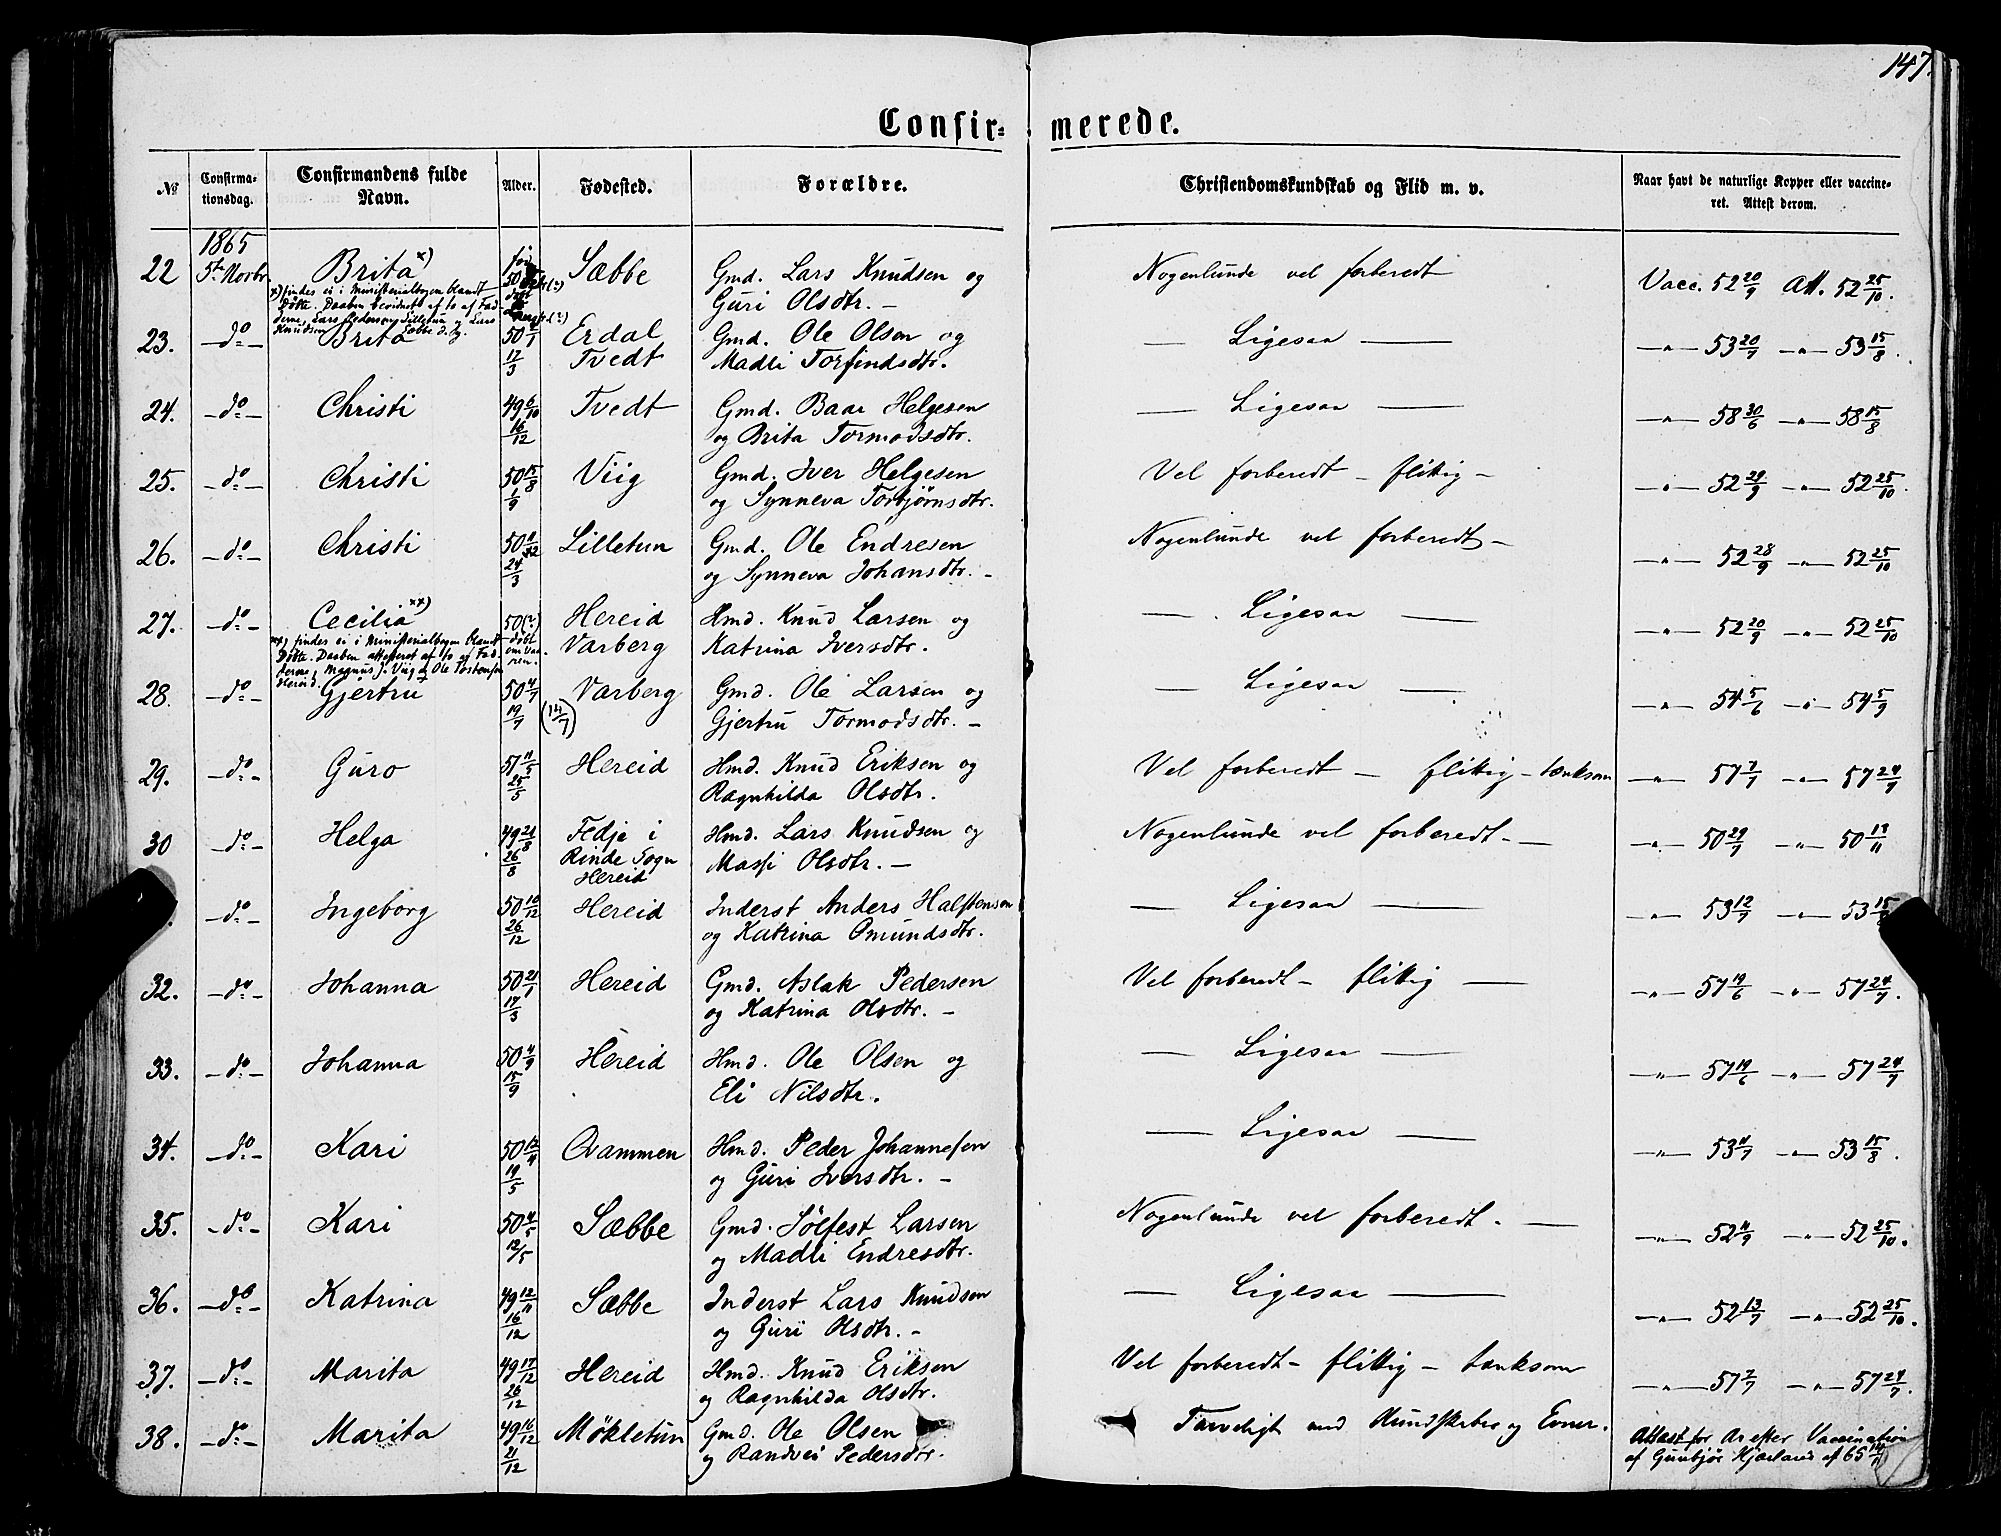 147.
Confir= merede.
№ Confirma= tionsdag. Confirmandens fulde Navn. Alder. Fødested. Forældre. Christendomskundskab og Flid m. v. Naar havt de naturlige Kopper eller vaccine= ret. Attest derom.
1865
22 5te Novbr Brita x) Sæbbe Gmd. Lars Knudsen og Nogenlunde vel forberedt Vacc. 52 20/9 Att. 52 25/10.
x) findes ei i Ministerialbogen blandt
Døbte. Daaben bevidnet af to af Fad-
derne, Lars Pedersen Lilletun og Lars
Knudsen Sæbbe
Guri Olsdtr. —
23. — do — Brita 50 4/1 Erdal Gmd. Ole Olsen og — Ligesaa — —"— 53 20/7 —"— 53 15/8.
17/3 Tvedt Madli Torfindsdtr.
24. — do — Christi 49 6/10 Tvedt Gmd. Baar Helgesen — Ligesaa — —"— 58 30/6 —"— 58 15/8
16/12 og Brita Tormodsdtr.
25. — do — Christi 50 15/8 Viig Gmd. Iver Helgesen Vel forberedt — flittig — —"— 52 29/9 —"— 52 25/10.
1/9 og Synneva Torbjørnsdtr.
26. — do — Christi 50 Lilletun Gmd. Ole Endresen Nogenlunde vel forberedt — —"— 52 28/9 —"— 52 25/10
24/3 og Synneva Johansdtr. —
27. — do — Cecilia xx) 50 (?) Hereid Hmd. Knud Larsen og — Ligesaa — —"— 52 20/9 —"— 52 25/10
xx) findes ei i Ministerialbogen blandt
Døbte. Daaben attesteret af to af Fad-
derne, Magnus J. Viig og Ole Torstensen
Hereid.
døbt
om Vaa-
ren.
Varberg Katrina Iversdtr.
28. — do — Gjertru 50 4/7 Varberg Gmd. Ole Larsen og — Ligesaa — —"— 54 5/6 —"— 54 5/9
19/7 (14/7) Gjertru Tormodsdtr. —
29. — do — Guro 51 11/5 Hereid Hmd. Knud Eriksen og Vel forberedt — flittig — tænksom —"— 57 7/7 —"— 57 24/7
25/5 Ragnhilda Olsdtr.
30 — do — Helga 49 21/8 Fedje i Hmd. Lars Knudsen og Nogenlunde vel forberedt. — —"— 50 29/7 —"— 50 17/11
26/8 Rinde Sogn Massi Olsdtr. —
Hereid
— do — Ingeborg 50 10/12 Hereid Inderst Anders Halstensen — Ligesaa — —"— 53 12/7 —"— 53 15/8
26/12 og Katrina Omundsdtr.
32. — do — Johanna 50 21/1 Hereid Gmd. Aslak Pedersen Vel forberedt — flittig — —"— 57 19/6 —"— 57 24/7.
17/3 og Katrina Olsdtr. —
33. — do — Johanna 50 4/9 Hereid Hmd. Ole Olsen og — Ligesaa — —"— 57 19/6 —"— 57 24/7
15/9 Eli Nilsdtr.
34. — do — Kari 50 12/4 Qvammen Hmd. Peder Johannesen — Ligesaa — —"— 53 4/7 —"— 53 15/8.
19/5 og Guri Iversdtr. —
35. — do — Kari 50 4/5 Sæbbe Gmd. Sølfest Larsen Nogenlunde vel forberedt. — —"— 52 4/9 —"— 52 25/10.
12/5 og Madli Endresdtr.
36. — do — Katrina 49 12/11 Sæbbe Inderst Lars Knudsen — Ligesaa — —"— 52 13/7 —"— 52 25/10.
16/12 og Guri Olsdtr. —
37. — do — Marita 49 17/12 Hereid Hmd. Knud Eriksen Vel forberedt — flittig — tænksom —"— 57 2/7 —"— 57 24/7.
26/12 og Ragnhilda Olsdtr.
38. — do — Marita 49 16/12 Møkletun Gmd. Ole Olsen Tarveligt med Kundskaber og Evner. Attest for Ar efter Vaccination
21/12 og Randvei Pedersdtr. af Gunbjør Kjærland af 65 14/11